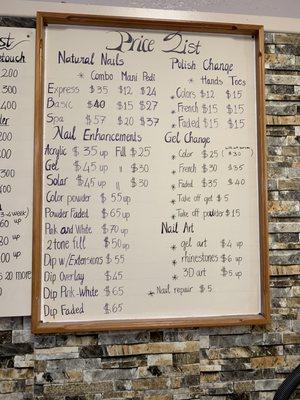 Price List
Natural Nails
* Combo Mani Pedi
Express $35 $12 $24
Basic $40 $15 $27
Spa $57 $20 $37
Nail Enhancements
Acrylic $35 up Fill $25
Gel $45 up " $30
Solar $45 up " $30
Color powder $55 up
Powder Faded $65 up
Pink and White $70 up
2 tone fill $50 up
Dip w/Extensions $55 up
Dip Overlay $45
Dip Pink-White $65
Dip Faded $65
Polish Change
* Hands Toes
* Colors $12 $15
* French $15 $15
* Faded $15 $15
Gel Change
* Color $25 ($30)
* French $30 $35
* Faded $35 $40
* Take off gel $5
* Take off powder $15
Nail Art
* gel art $4 up
* rhinestones $6 up
* 3D art $5 up
* Nail repair $5
st
etouch
200
300
400
der
200
300
400
3-4 week)
60 up
90 up
80 up
up
5 20 more